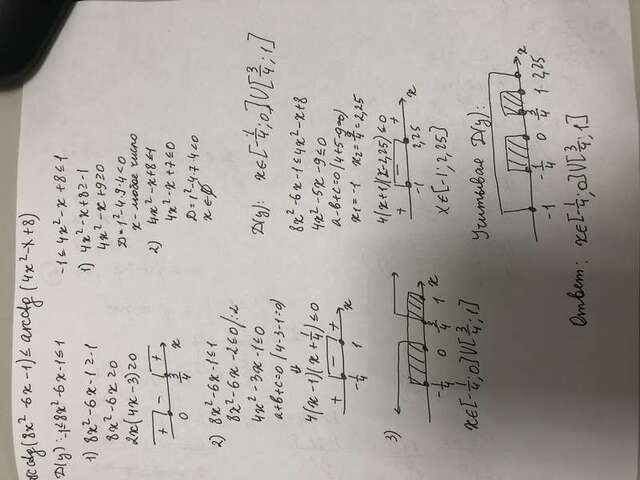 arcctg(8x² -6x -1) ≤ arcctg (4x² -x +8)
D(y): -1≤8x²-6x-1≤1
1) 8x²-6x-1≥-1
8x²-6x≥0
2x(4x-3)≥0
+ - +
0 3/4 x
2) 8x²-6x-1≤1
8x²-6x-2≤0/:2
4x²-3x-1≤0
a+b+c=0 (4-3-1=0)
⇓
4(x-1)(x+1/4)≤0
+ - +
-1/4 1 x
3)
-1/4 0 3/4 1 x
x∈[-1/4;0]∪[3/4;1]
-1≤4x²-x+8≤1
1) 4x²-x+8≥-1
4x²-x+9≥0
D=1²-4·9·4<0
x-любое число
2) 4x²-x+8≤1
4x²-x+7≤0
D=1²-4·7·4<0
x∈∅
D(y): x∈[-1/4;0]∪[3/4;1]
8x²-6x-1≤4x²-x+8
4x²-5x-9≤0
a-b+c=0 (4+5-9=0)
x₁=-1 x₂=9/4=2,25
4(x+1)(x-2,25)≤0
+ - +
-1 2,25 x
x∈[-1;2,25]
Учитывая D(y):
-1 -1/4 0 3/4 1 2,25 x
Ответ: x∈[-1/4;0]∪[3/4;1]